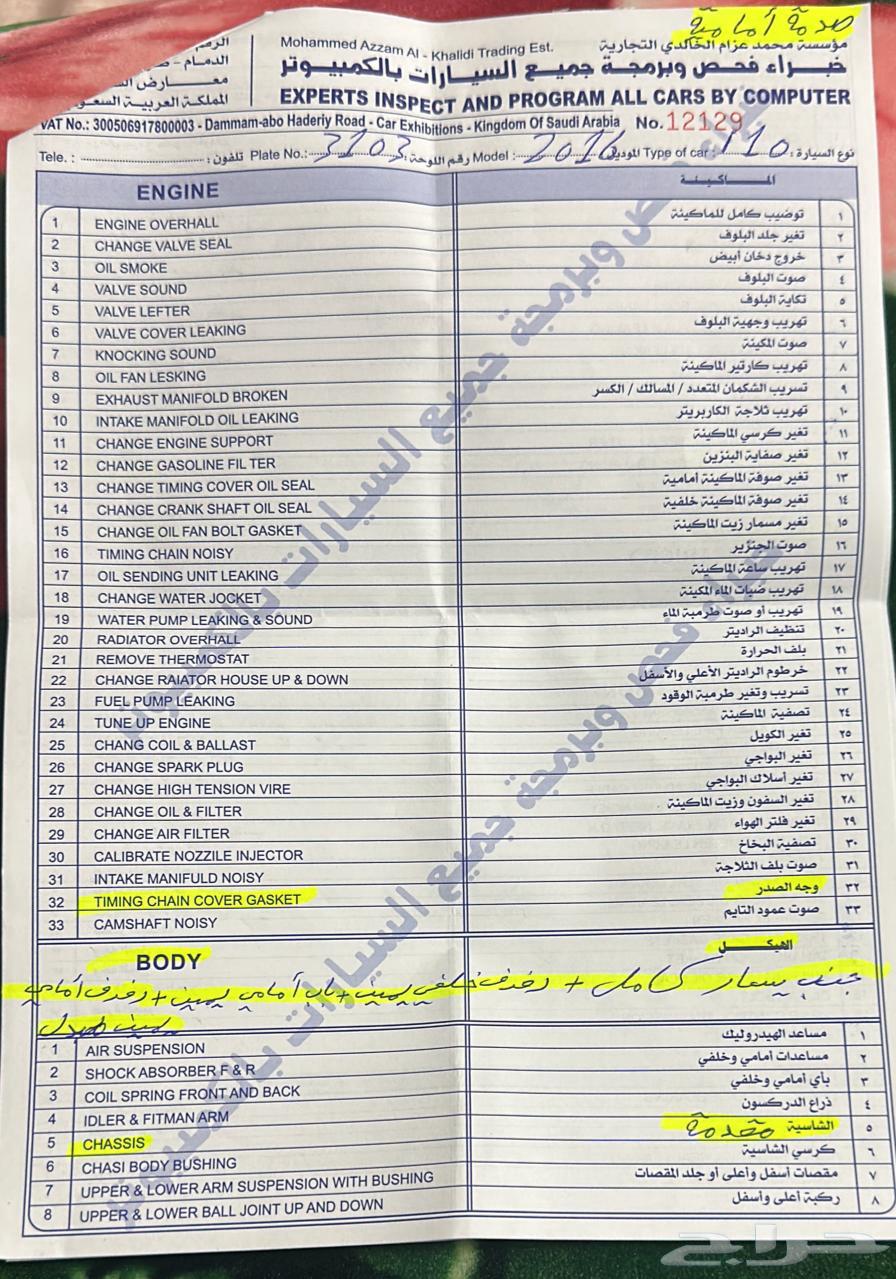 صدمة أمامية
Mohammed Azzam Al - Khalidi Trading Est. مؤسسة محمد عزام الخالدي التجارية
خبراء فحص وبرمجة جميع السيارات بالكمبيوتر
EXPERTS INSPECT AND PROGRAM ALL CARS BY COMPUTER
الدمام -
معارض
المملكة العربية
VAT No.: 300506917800003 - Dammam-abo Haderiy Road - Car Exhibitions - Kingdom Of Saudi Arabia No. 12129
Tele. : تلفون : Plate No.: 3103 رقم اللوحة: Model : 2016 الموديل Type of car : نوع السيارة :
ENGINE الماكينة
1 ENGINE OVERHALL توضيب كامل للماكينة ١
2 CHANGE VALVE SEAL تغير جلد البلوف ٢
3 OIL SMOKE خروج دخان أبيض ٣
4 VALVE SOUND صوت البلوف ٤
5 VALVE LEFTER تكاية البلوف ٥
6 VALVE COVER LEAKING تهريب وجهية البلوف ٦
7 KNOCKING SOUND صوت المكينة ٧
8 OIL FAN LESKING تهريب كارتير الماكينة ٨
9 EXHAUST MANIFOLD BROKEN تسريب الشكمان المتعدد / المسالك / الكسر ٩
10 INTAKE MANIFOLD OIL LEAKING تهريب ثلاجة الكاربريتر ١٠
11 CHANGE ENGINE SUPPORT تغير كرسي الماكينة ١١
12 CHANGE GASOLINE FIL TER تغير صفاية البنزين ١٢
13 CHANGE TIMING COVER OIL SEAL تغير صوفة الماكينة أمامية ١٣
14 CHANGE CRANK SHAFT OIL SEAL تغير صوفة الماكينة خلفية ١٤
15 CHANGE OIL FAN BOLT GASKET تغير مسمار زيت الماكينة ١٥
16 TIMING CHAIN NOISY صوت الجنزير ١٦
17 OIL SENDING UNIT LEAKING تهريب ساعة الماكينة ١٧
18 CHANGE WATER JOCKET تهريب ضبات الماء المكينة ١٨
19 WATER PUMP LEAKING & SOUND تهريب أو صوت طرمبة الماء ١٩
20 RADIATOR OVERHALL تنظيف الراديتر ٢٠
21 REMOVE THERMOSTAT بلف الحرارة ٢١
22 CHANGE RAIATOR HOUSE UP & DOWN خرطوم الراديتر الأعلي والأسفل ٢٢
23 FUEL PUMP LEAKING تسريب وتغير طرمبة الوقود ٢٣
24 TUNE UP ENGINE تصفية الماكينة ٢٤
25 CHANG COIL & BALLAST تغير الكويل ٢٥
26 CHANGE SPARK PLUG تغير البواجي ٢٦
27 CHANGE HIGH TENSION VIRE تغير أسلاك البواجي ٢٧
28 CHANGE OIL & FILTER تغير السفون وزيت الماكينة ٢٨
29 CHANGE AIR FILTER تغير فلتر الهواء ٢٩
30 CALIBRATE NOZZILE INJECTOR تصفية البخاخ ٣٠
31 INTAKE MANIFULD NOISY صوت بلف الثلاجة ٣١
32 TIMING CHAIN COVER GASKET وجه الصدر ٣٢
33 CAMSHAFT NOISY صوت عمود التايم ٣٣
BODY الهيكل
جنب يسار كامل + رفرف خلفي يمين + باب أمامي يمين + رفرف أمامي
يمين
1 AIR SUSPENSION مساعد الهيدروليك ١
2 SHOCK ABSORBER F & R مساعدات أمامي وخلفي ٢
3 COIL SPRING FRONT AND BACK بأي أمامي وخلفي ٣
4 IDLER & FITMAN ARM ذراع الدركسون ٤
5 CHASSIS مقدمة الشاسية ٥
6 CHASI BODY BUSHING كرسي الشاسية ٦
7 UPPER & LOWER ARM SUSPENSION WITH BUSHING مقصات أسفل وأعلى أو جلد المقصات ٧
8 UPPER & LOWER BALL JOINT UP AND DOWN ركبة أعلى وأسفل ٨
حراج